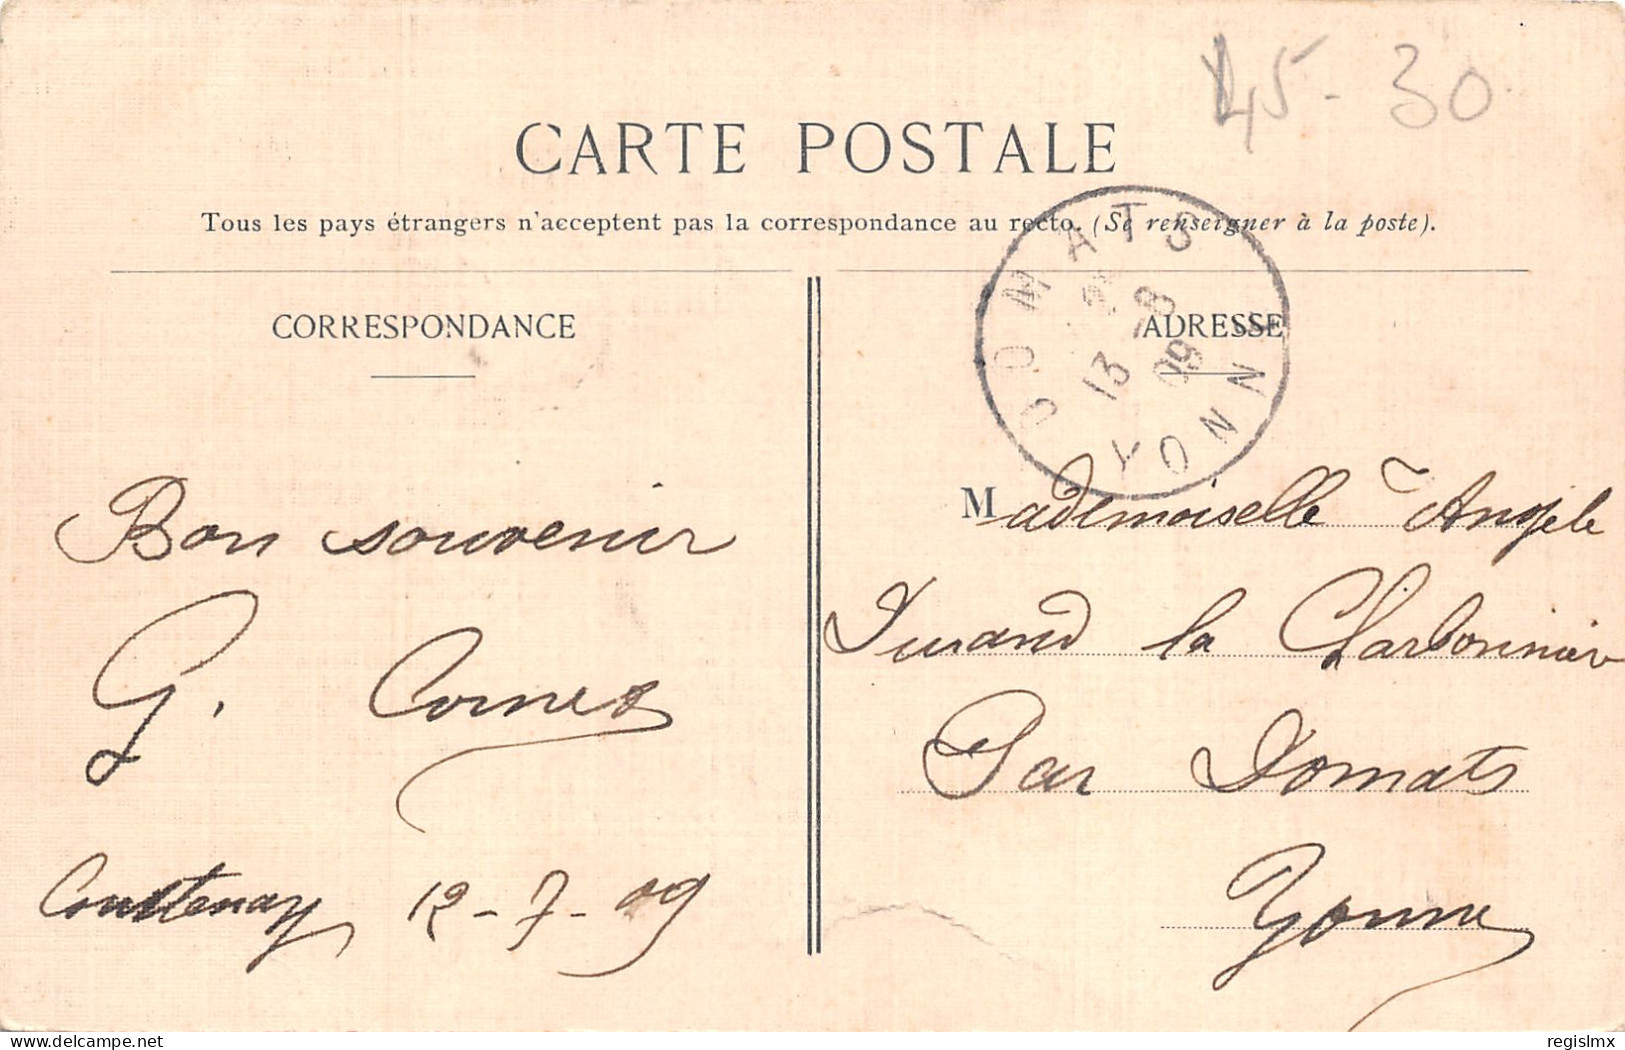 45 - 30
CARTE POSTALE
Tous les pays étrangers n'acceptent pas la correspondance au recto. (Se renseigner à la poste).
DOMATS
13 8
09
YONNE
CORRESPONDANCE
ADRESSE
Bon souvenir
G.
Courtenay 12-7-09
Mademoiselle Angèle
Durand la Charbonnière
Par Domats
Yonne
delcampe.net
regislmx